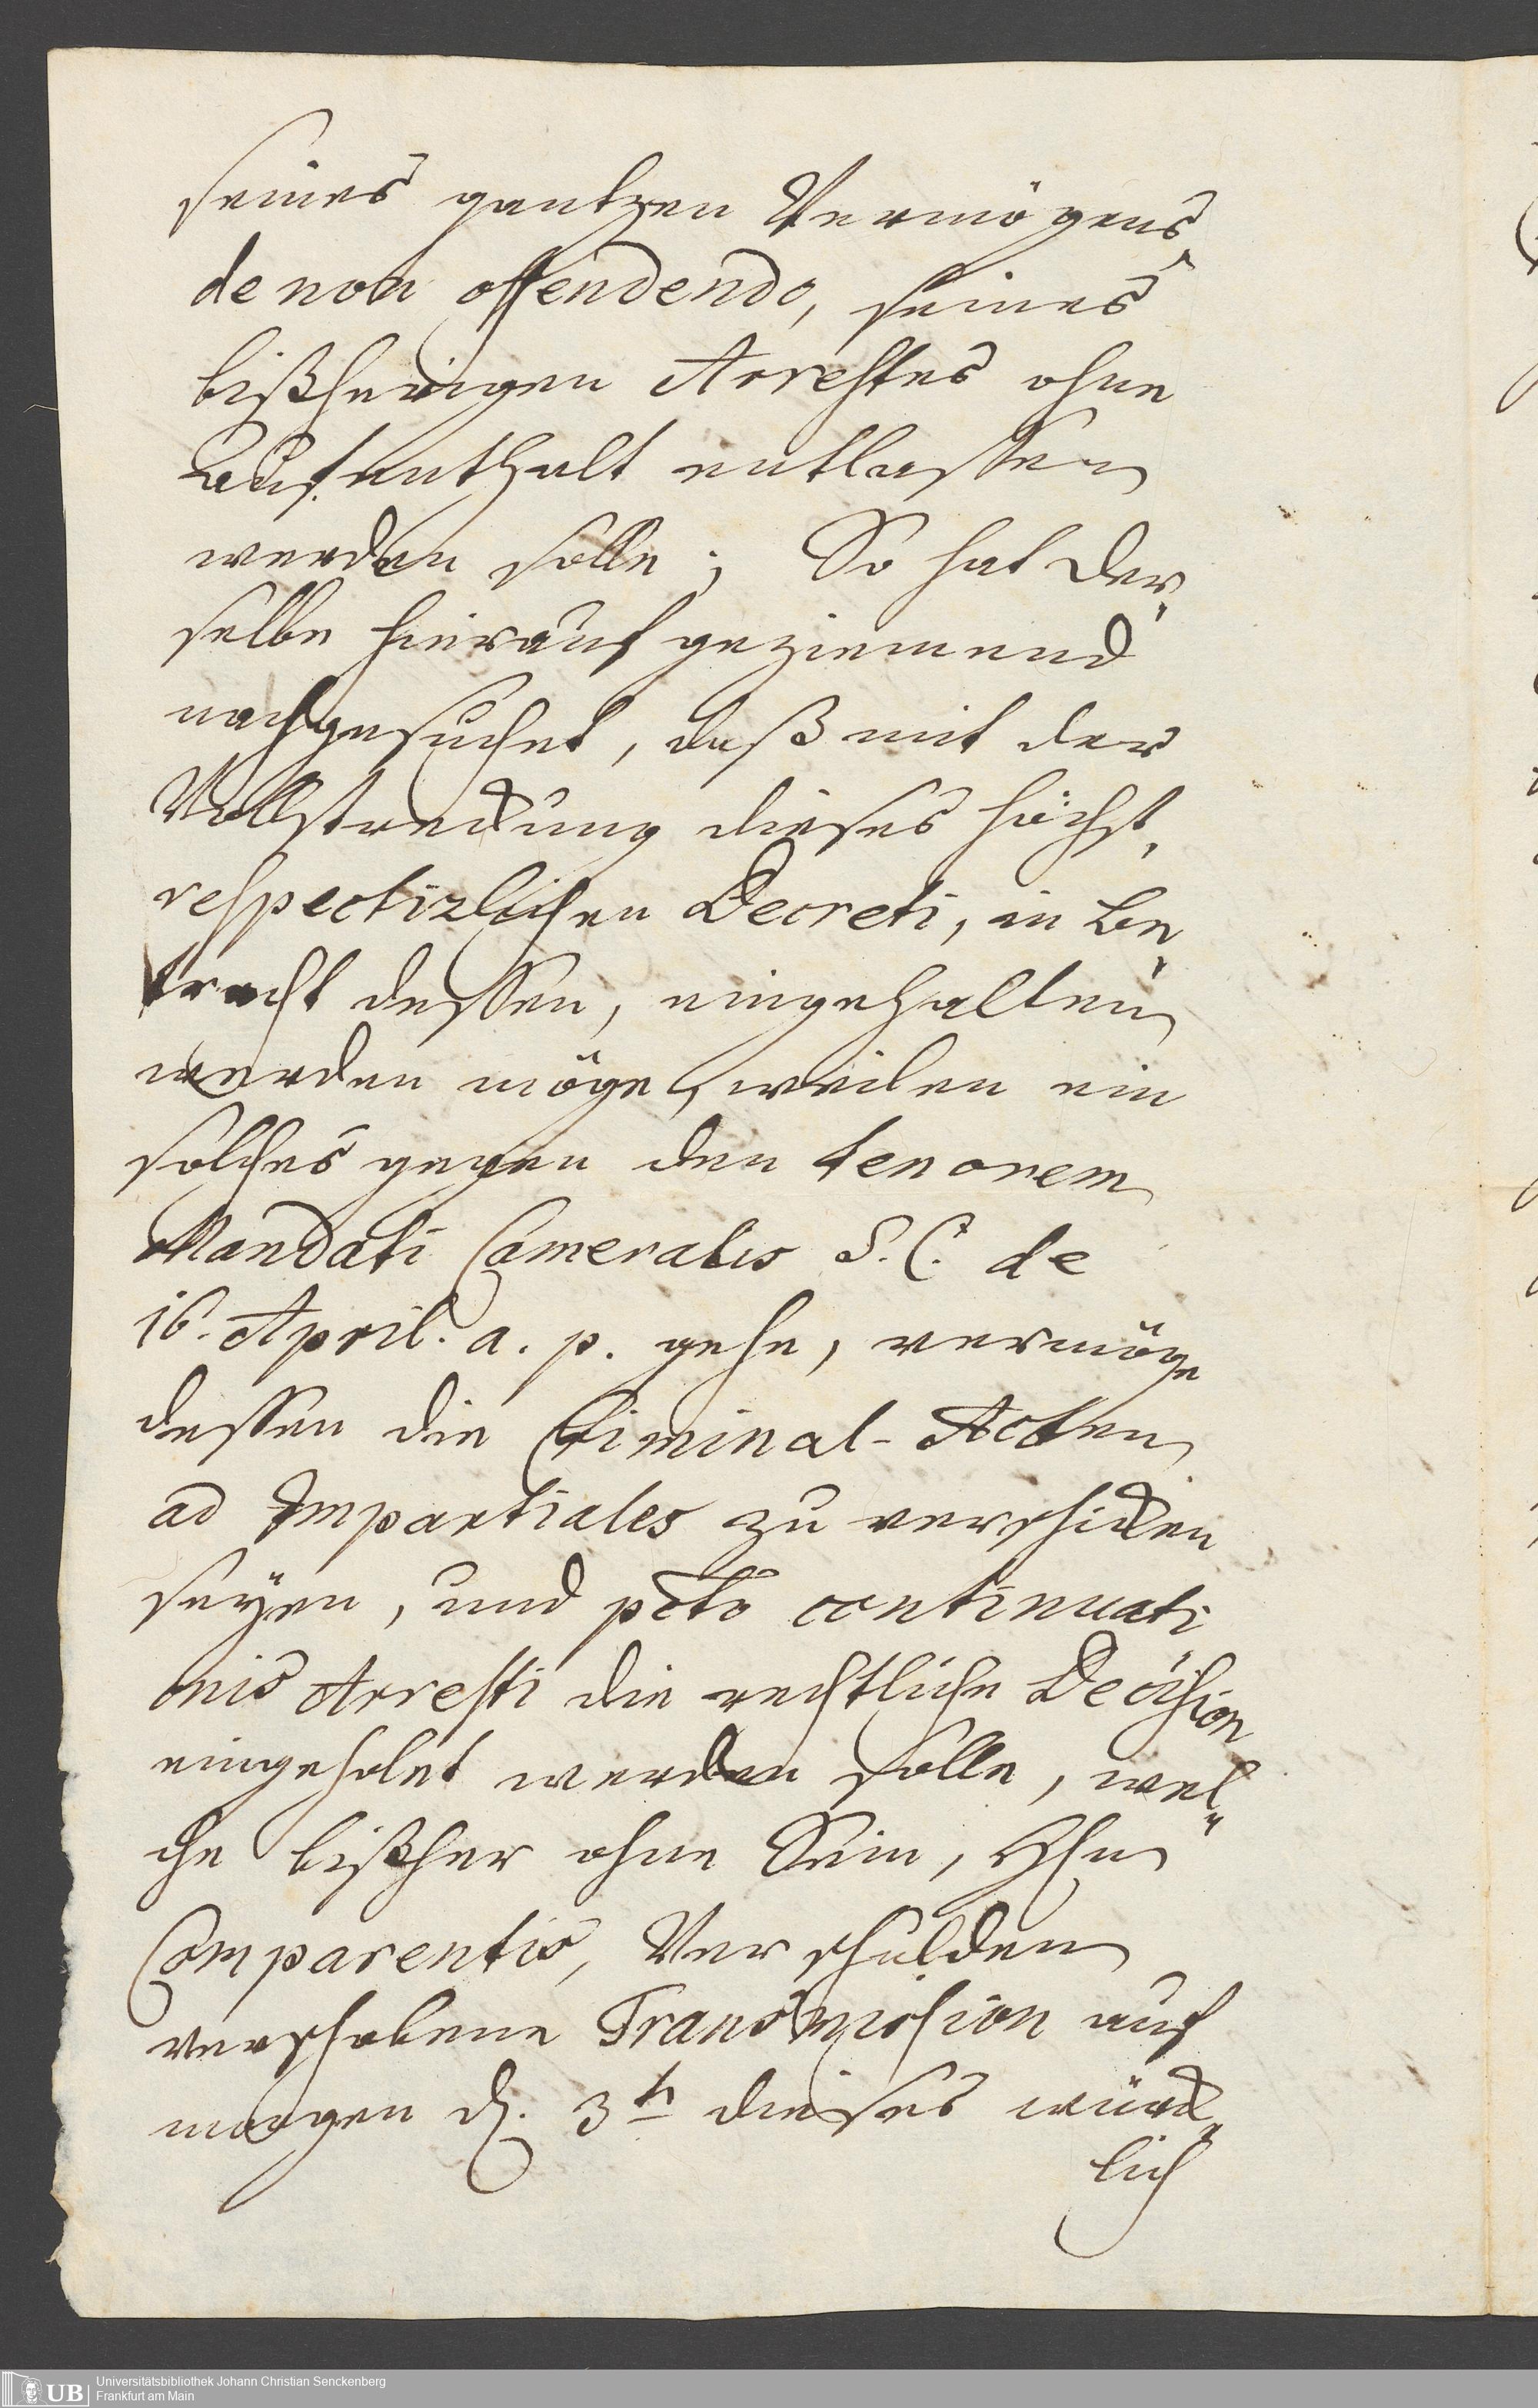 seines gantzen Vermögens
de non offendendo, seines
bißherigen Arrestes ohne
Aufenthalt entlassen
werden solle; So hat der-
selbe hierauf geziemend
nachgesuchet, daß mit der
Vollstreckung dieses höchst-
respectirlichen Decreti, in be-
tracht dessen, eingehalten
werden möge, weilen ein
solches gegen den tenorem
Mandati Cameralis S. C. de
16. April. a. p. gehe, vermöge
dessen die Criminal-Acten
ad Impartiales zu verschicken
seyen, und pcto continuati
onis Arresti die rechtliche Decision
eingeholet werden solle, wel-
che bißher ohne Sein, Hrn
Comparentis, Verschulden
verschobene Transmission auf
morgen d. 3t dieses würck-
lich
Universitätsbibliothek Johann Christian Senckenberg
Frankfurt am Main
UB